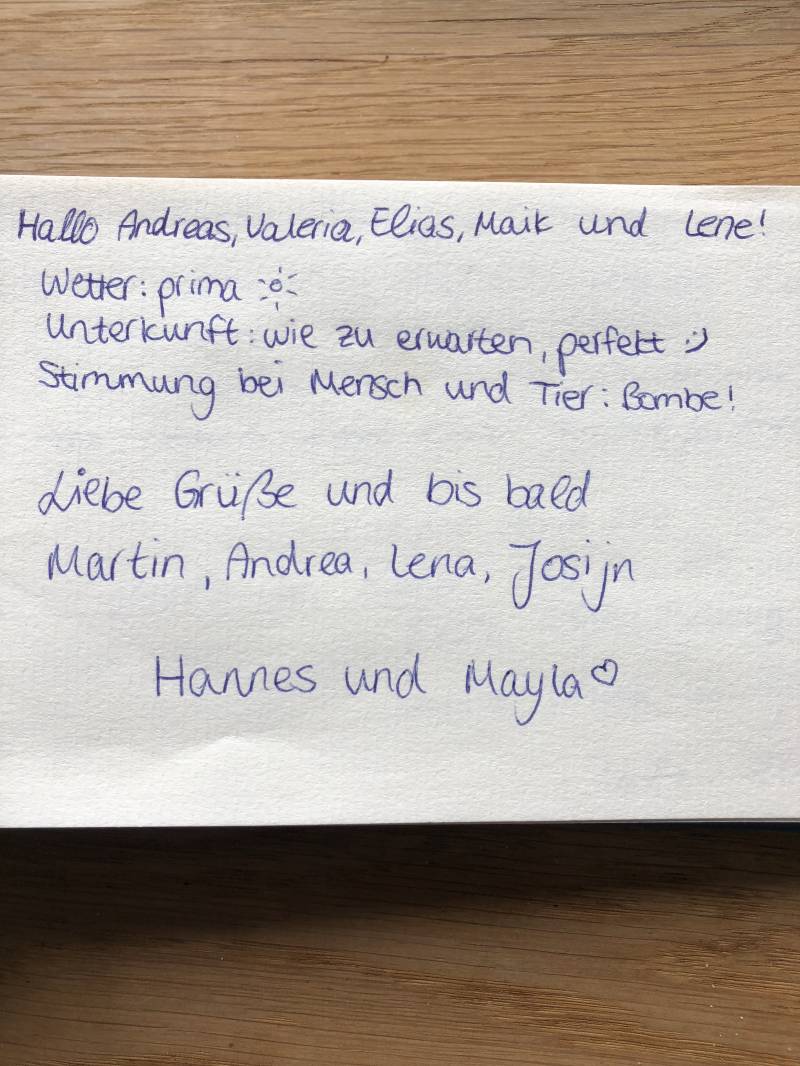 Hallo Andreas, Valeria, Elias, Maik und Lene!
Wetter: prima ☼
Unterkunft: wie zu erwarten, perfekt :)
Stimmung bei Mensch und Tier: Bombe!
Liebe Grüße und bis bald
Martin, Andrea, Lena, Josijn
Hannes und Mayla ♡